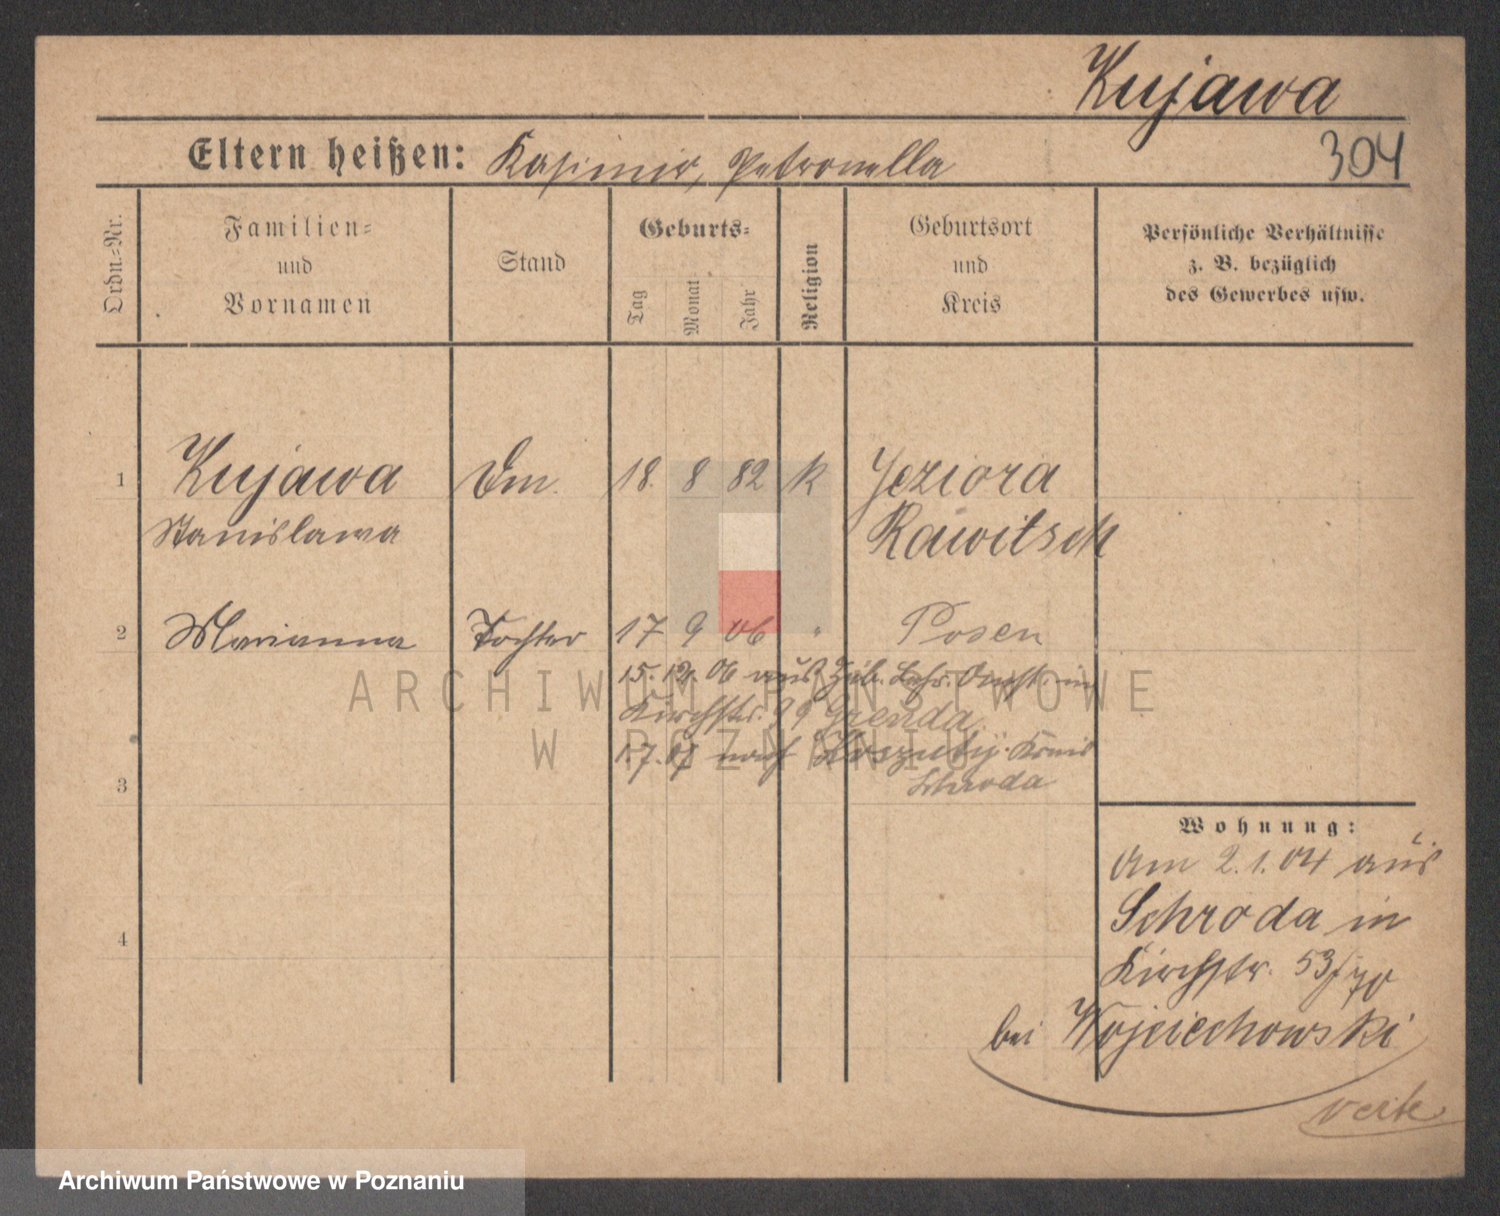 Kujawa
304
Eltern heißen: Kasimir, Petronella
Ordn.=Nr.
Familien=
und
Vornamen
Stand
Geburts=
Tag
Monat
Jahr
Religion
Geburtsort
und
Kreis
Persönliche Verhältnisse
z. B. bezüglich
des Gewerbes usw.
1 Kujawa 18. 8 82 k Jeziora
Stanislawa Rawitsch
2 Marianna Tochter 17 9 06 " Posen
15. 12. 06 aus
Kirchstr. 99 Grenda
1.7.07 nach Koszuty Kreis
Schroda
3
4
Wohnung:
Am 2.1.04 aus
Schroda in
Kirchstr. 53/
bei Wojciechowski
verte
ARCHIWUM PAŃSTWOWE
W POZNANIU
Archiwum Państwowe w Poznaniu